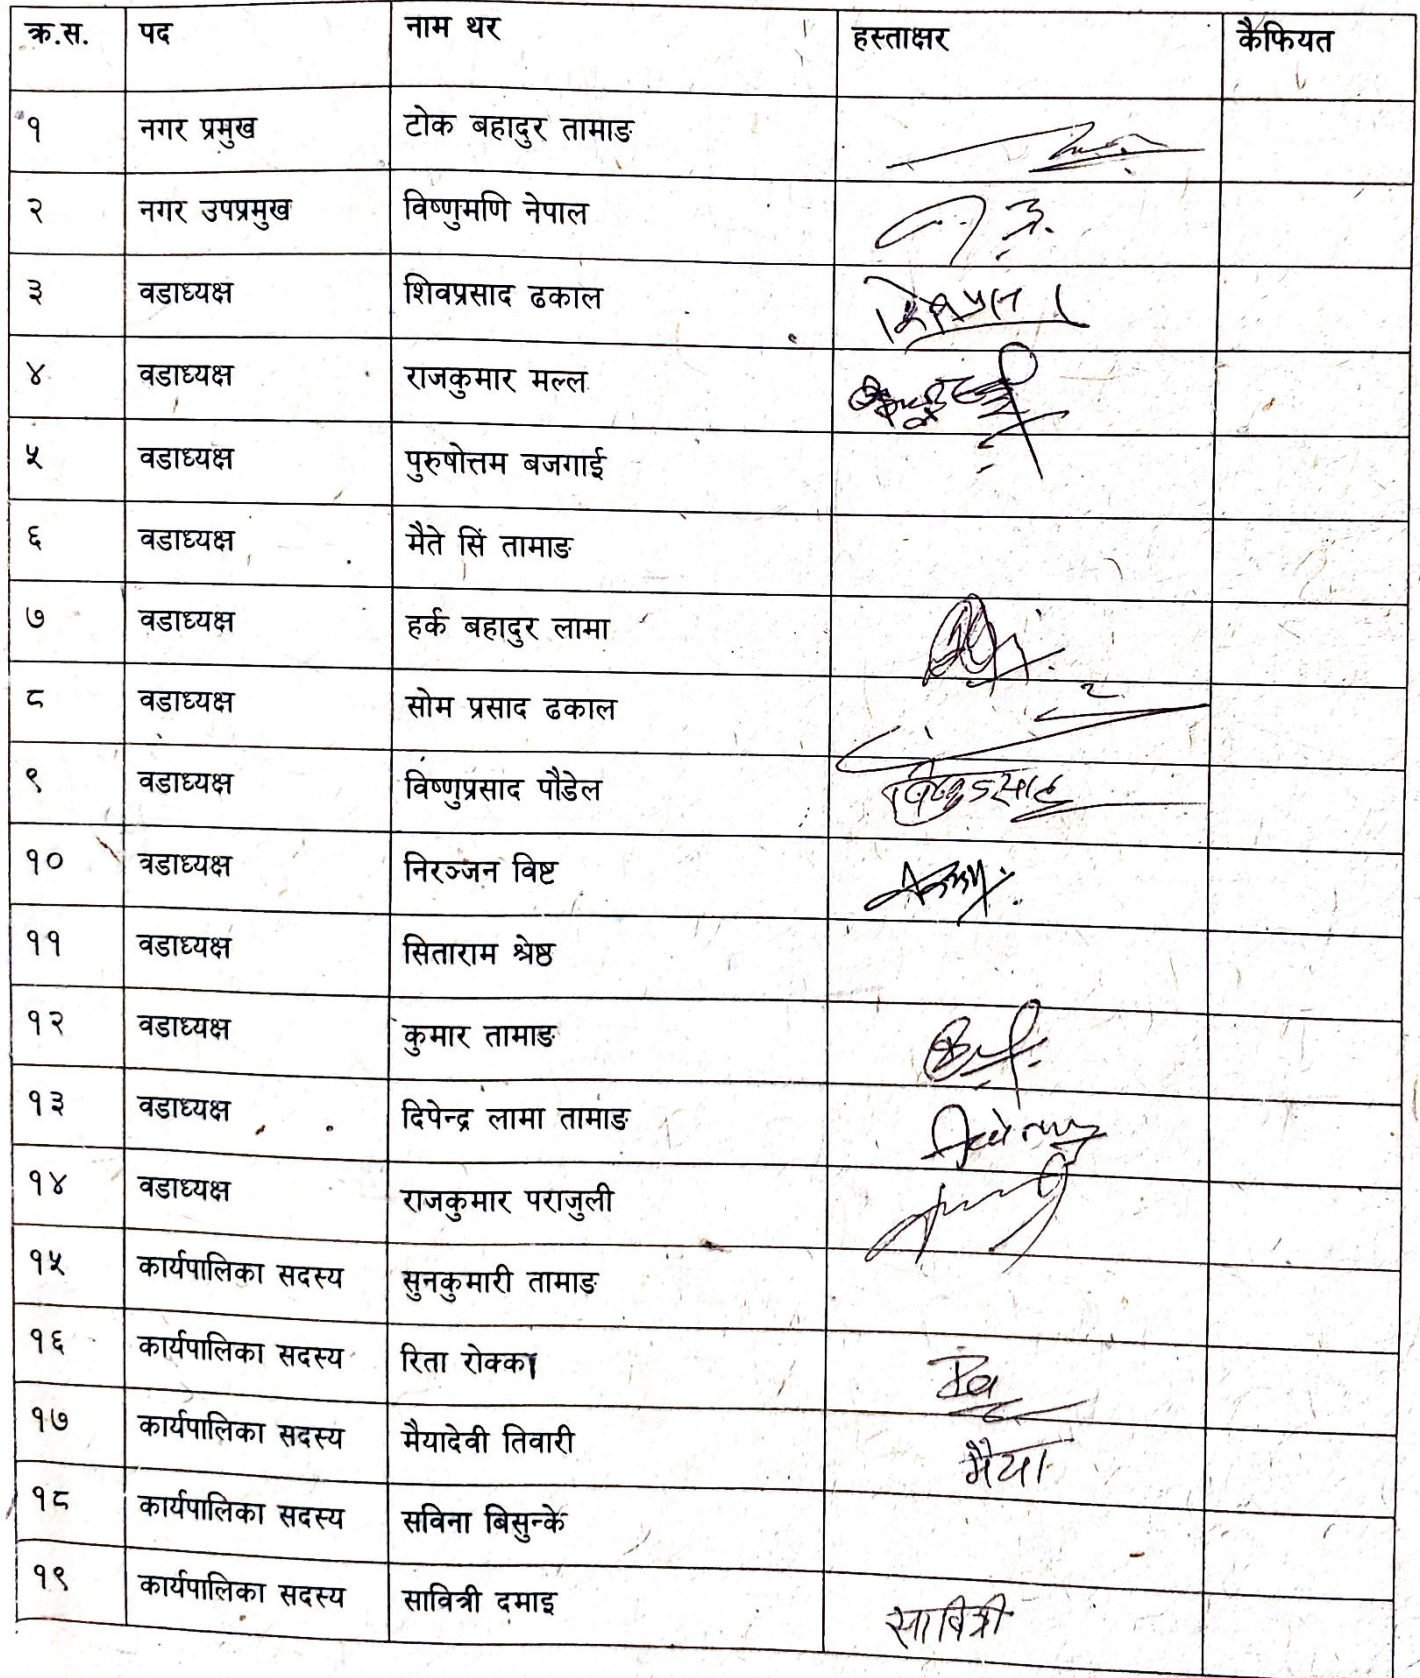 क्र.स. पद नाम थर हस्ताक्षर कैफियत
१ नगर प्रमुख टोक बहादुर तामाङ
२ नगर उपप्रमुख विष्णुमणि नेपाल
३ वडाध्यक्ष शिवप्रसाद ढकाल
४ वडाध्यक्ष राजकुमार मल्ल
५ वडाध्यक्ष पुरुषोत्तम बजगाई
६ वडाध्यक्ष मैते सिं तामाङ
७ वडाध्यक्ष हर्क बहादुर लामा
८ वडाध्यक्ष सोम प्रसाद ढकाल
९ वडाध्यक्ष विष्णुप्रसाद पौडेल
१० वडाध्यक्ष निरञ्जन विष्ट
११ वडाध्यक्ष सिताराम श्रेष्ठ
१२ वडाध्यक्ष कुमार तामाङ
१३ वडाध्यक्ष दिपेन्द्र लामा तामाङ
१४ वडाध्यक्ष राजकुमार पराजुली
१५ कार्यपालिका सदस्य सुनकुमारी तामाङ
१६ कार्यपालिका सदस्य रिता रोक्का
१७ कार्यपालिका सदस्य मैयादेवी तिवारी मैया
१८ कार्यपालिका सदस्य सविना बिसुन्के
१९ कार्यपालिका सदस्य सावित्री दमाइ सावित्री